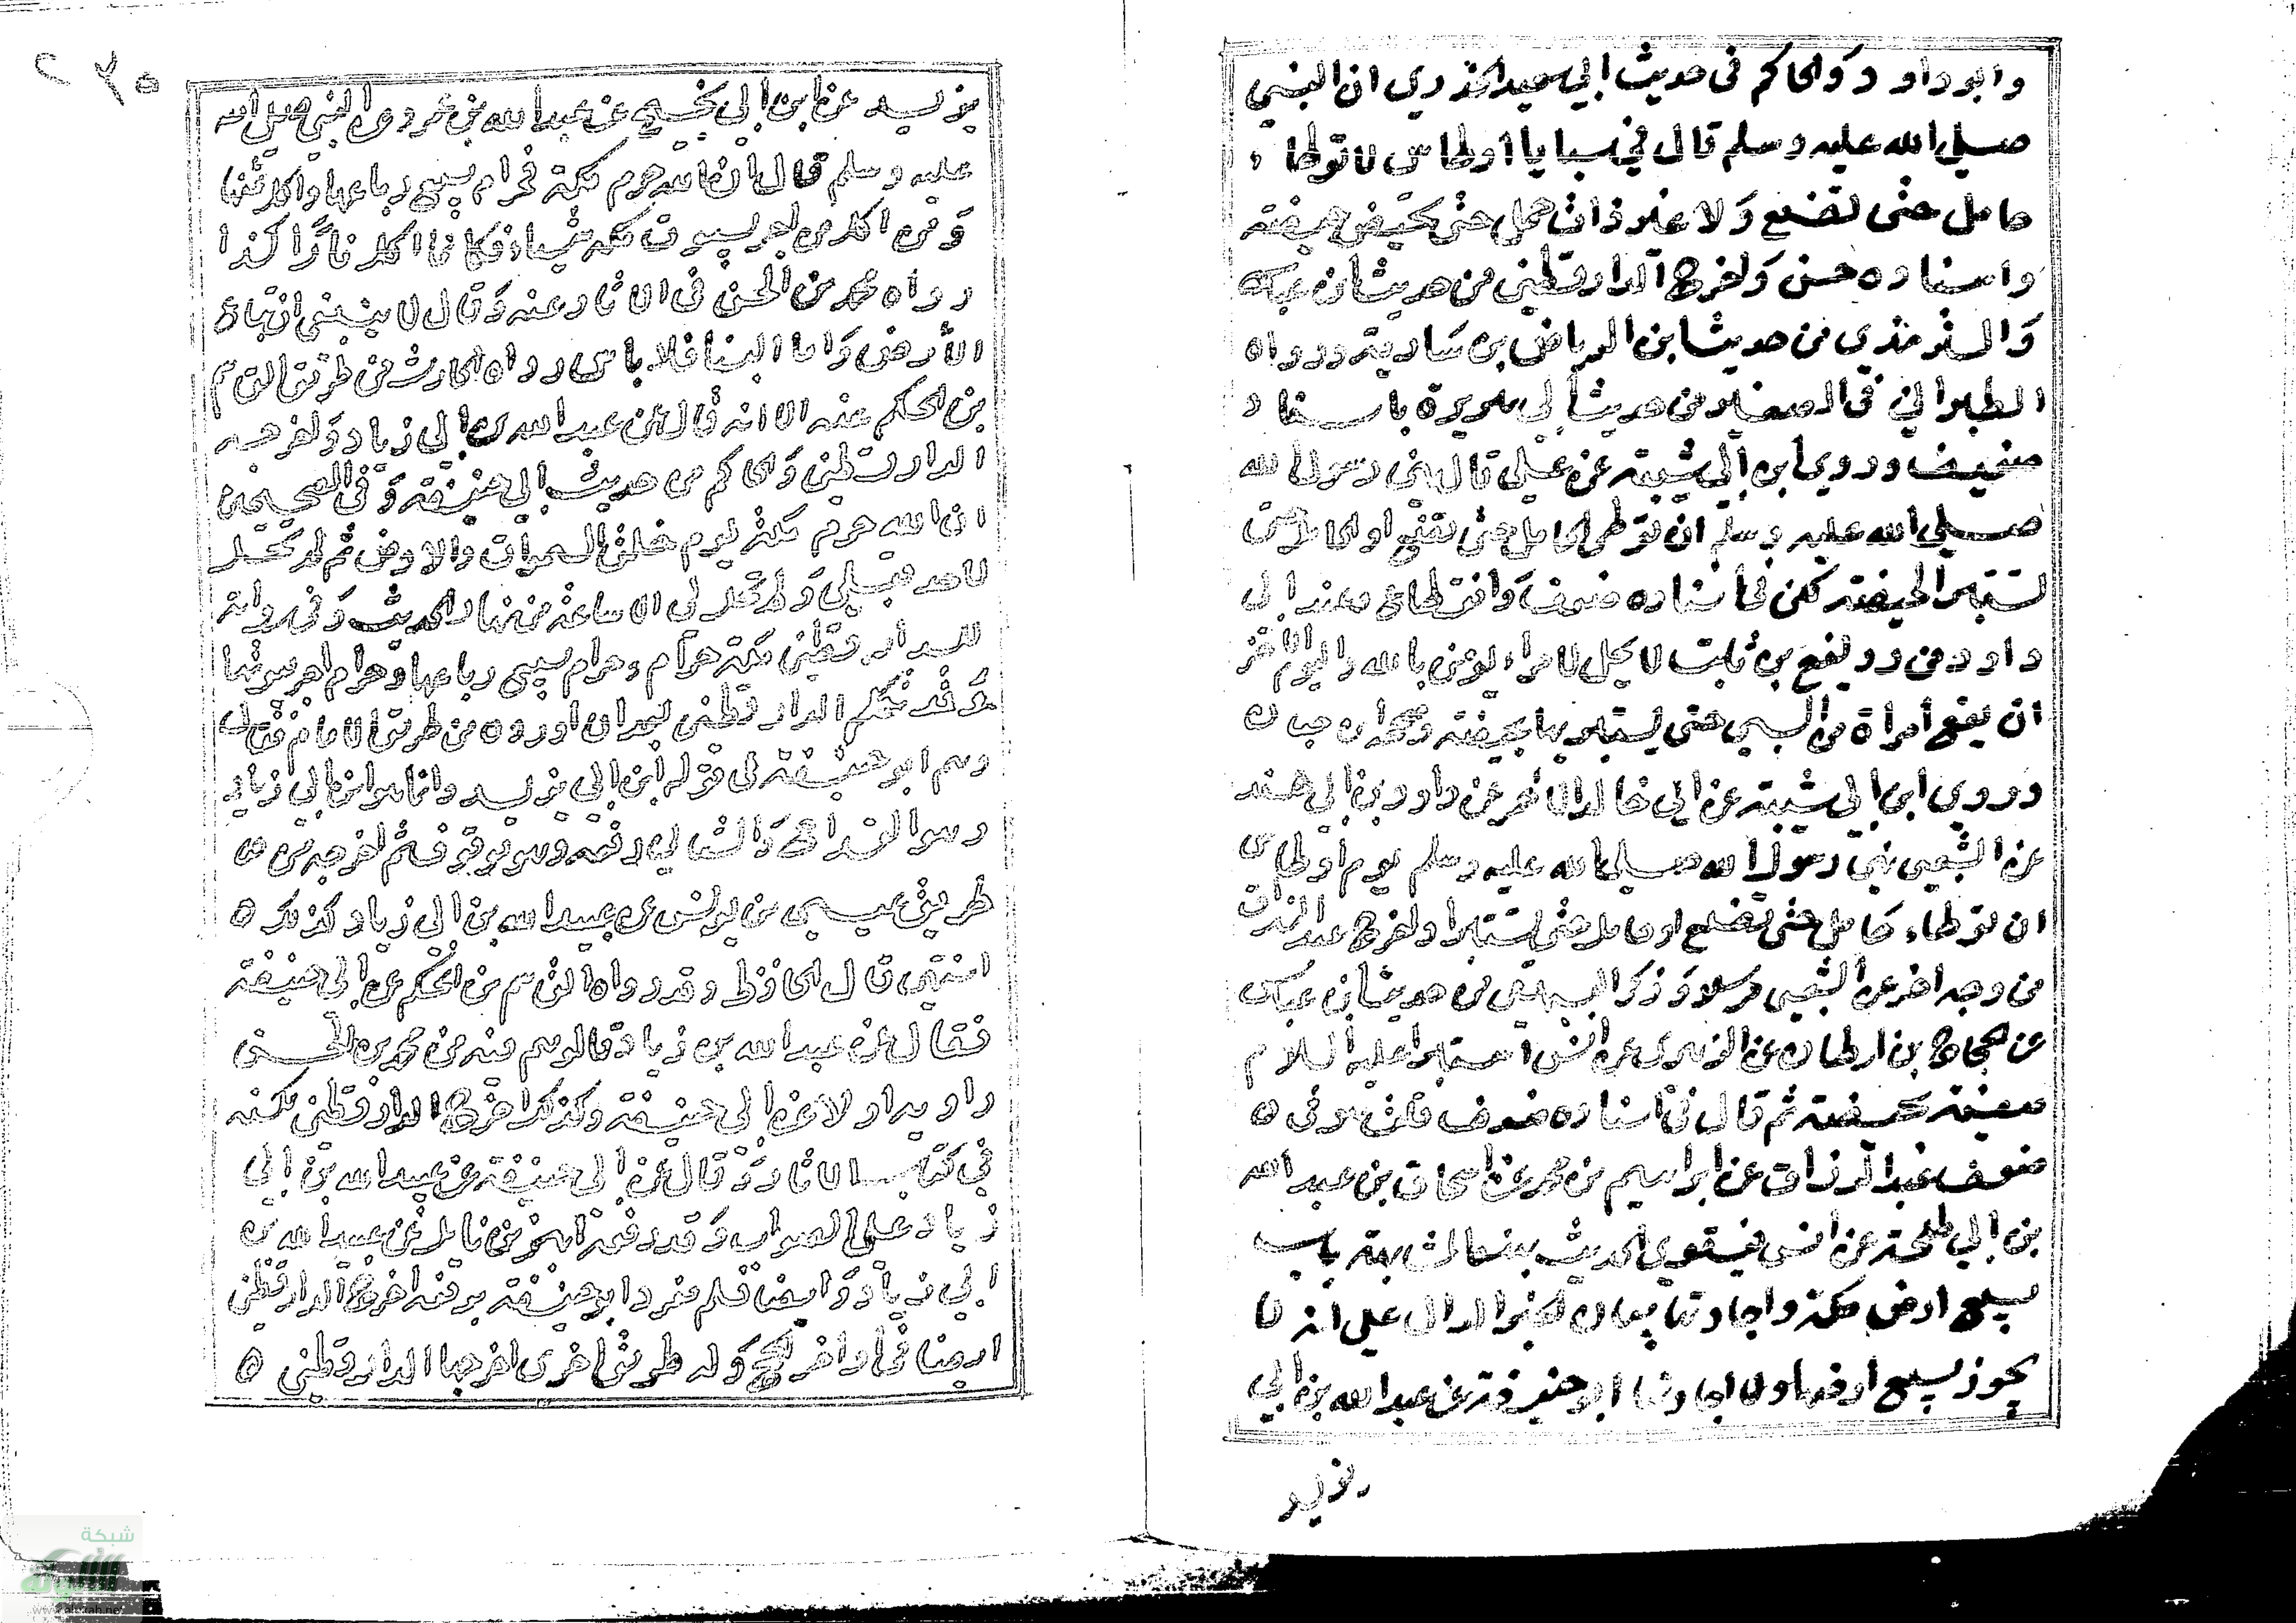 وابو داود والحاكم في حديث ابي سعيد الخدري ان النبي
صلي الله عليه وسلم قال في سبايا اوطاس لا توطاء
حامل حتى تضع ولا غير ذات حمل حتى تحيض حيضة
واسناده حسن واخرج الدارقطني من حديث ابن عباس
والترمذي من حديث ابن العرباض بن سارية ورواه
الطبراني في الصغير من حديث ابي هريرة باسناد
ضعيف وروي ابن ابي شيبة عن علي قال نهى رسول الله
صلي الله عليه وسلم ان توطى الحامل حتى تضع او الحائل حتى
تستبرأ الحيضة لكن في اسناده ضعف وانقطاع وعند ابي
داود من رويفع بن ثابت لا يحل لامراء يومن بالله واليوم الاخر
ان يقع امراة من السبي حتى يستبريها بحيضة وصححه ابن حبان
وروي ابن ابي شيبة عن ابي خالد الاحمر عن داود بن ابي هند
عن الشعبي نهى رسول الله صلي الله عليه وسلم يوم اوطاس
ان توطاء حامل حتى تضع او حايل حتى تستبرا واخرج عبد الرزاق
من وجه اخر عن الشعبي مرسلا وذكر البيهقي من حديث ابن عباس
عن حجاج بن ارطاة عن الزهري عن انس استبرا عليه السلام
صفية بحيضة ثم قال في اسناده ضعف قلت هو في
ضعف عبد الرزاق عن ابراهيم بن محمد عن اسحاق بن عبد الله
بن ابي طلحة عن انس فيتقوي الحديث بمتابعته باب
بيع ارض مكة واجارتها بيان الخبر الدال علي انه لا
يجوز بيع ارضها ولا اجارتها ابو حنيفة عن عبد الله بن ابي
يزيد
يزيد عن ابن ابي نجيح عن عبد الله بن عمرو عن النبي صلي الله
عليه وسلم قال ان الله حرم مكة فحرام بيع رباعها واكل ثمنها
ومن اكل من اجر بيوت مكة شياء فكانما اكل نارا كذا
رواه محمد بن الحسن في الاثار عنه وقال لا ينبغي ان تباع
الأرض واما البنا فلا باس ورواه الحارث من طريق القسم
بن الحكم عنه الا انه قال عن عبد الله بن ابي زياد واخرجه
الدارقطني والحاكم من حديث ابي حنيفة وفي الصحيحين
ان الله حرم مكة يوم خلق السموات والارض ثم لم تحل
لاحد قبلي ولم تحل لي الا ساعة من نهار الحديث وفي رواية
للدارقطني مكة حرام وحرام بيع رباعها وحرام اجر بيوتها
وقد تكلم الدارقطني بعد ان اورده من طريق الامام فقال
وهم ابو حنيفة في قوله ابن ابي يزيد وانما هو ابن ابي زياد
وهو القداح والثاني رفعه وهو موقوف ثم اخرجه من
طريق عيسى بن يونس عن عبيد الله بن ابي زياد كذلك
انتهى قال الحافظ وقد رواه القسم بن الحكم عن ابي حنيفة
فقال عن عبد الله بن زياد فالوهم فيه من محمد بن الحسن
راويه اولا عن ابي حنيفة وكذلك اخرج الدارقطني لكنه
في كتاب الاثار وقال عن ابي حنيفة عن عبيد الله بن ابي
زياد علي الصواب وقد رفعه ايمن بن نابل عن عبيد الله بن
ابي زياد وايضا فلم ينفرد ابو حنيفة برفعه اخرج الدارقطني
ايضا في اواخر الحج وله طريق اخرى اخرجها الدارقطني
شبكة
الألوكة
www.alukah.net